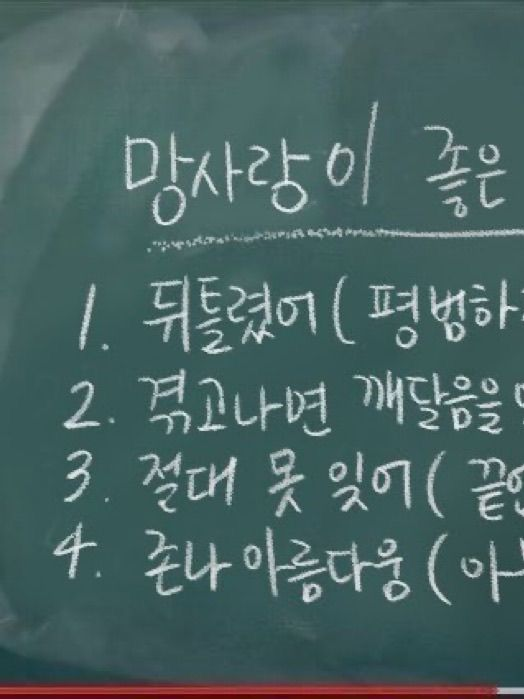 망사랑이 좋은
1. 뒤틀렸어 ( 평범하
2. 겪고나면 깨달음을
3. 절대 못 잊어 (
4. 존나 아름다웅 ( 아